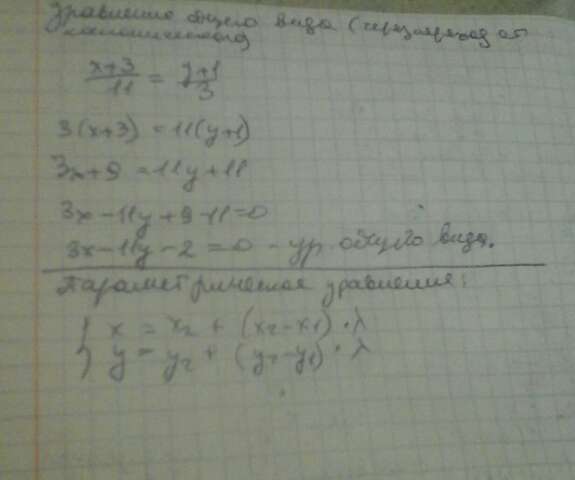 уравнение общего вида (через переход от
канонического)
x+3/11 = y+1/3
3(x+3) = 11(y+1)
3x+9 = 11y+11
3x-11y+9-11=0
3x-11y-2=0 - ур. общего вида.
Параметрическое уравнение:
{ x = x₂ + (x₂-x₁)·λ
y = y₂ + (y₂-y₁)·λ